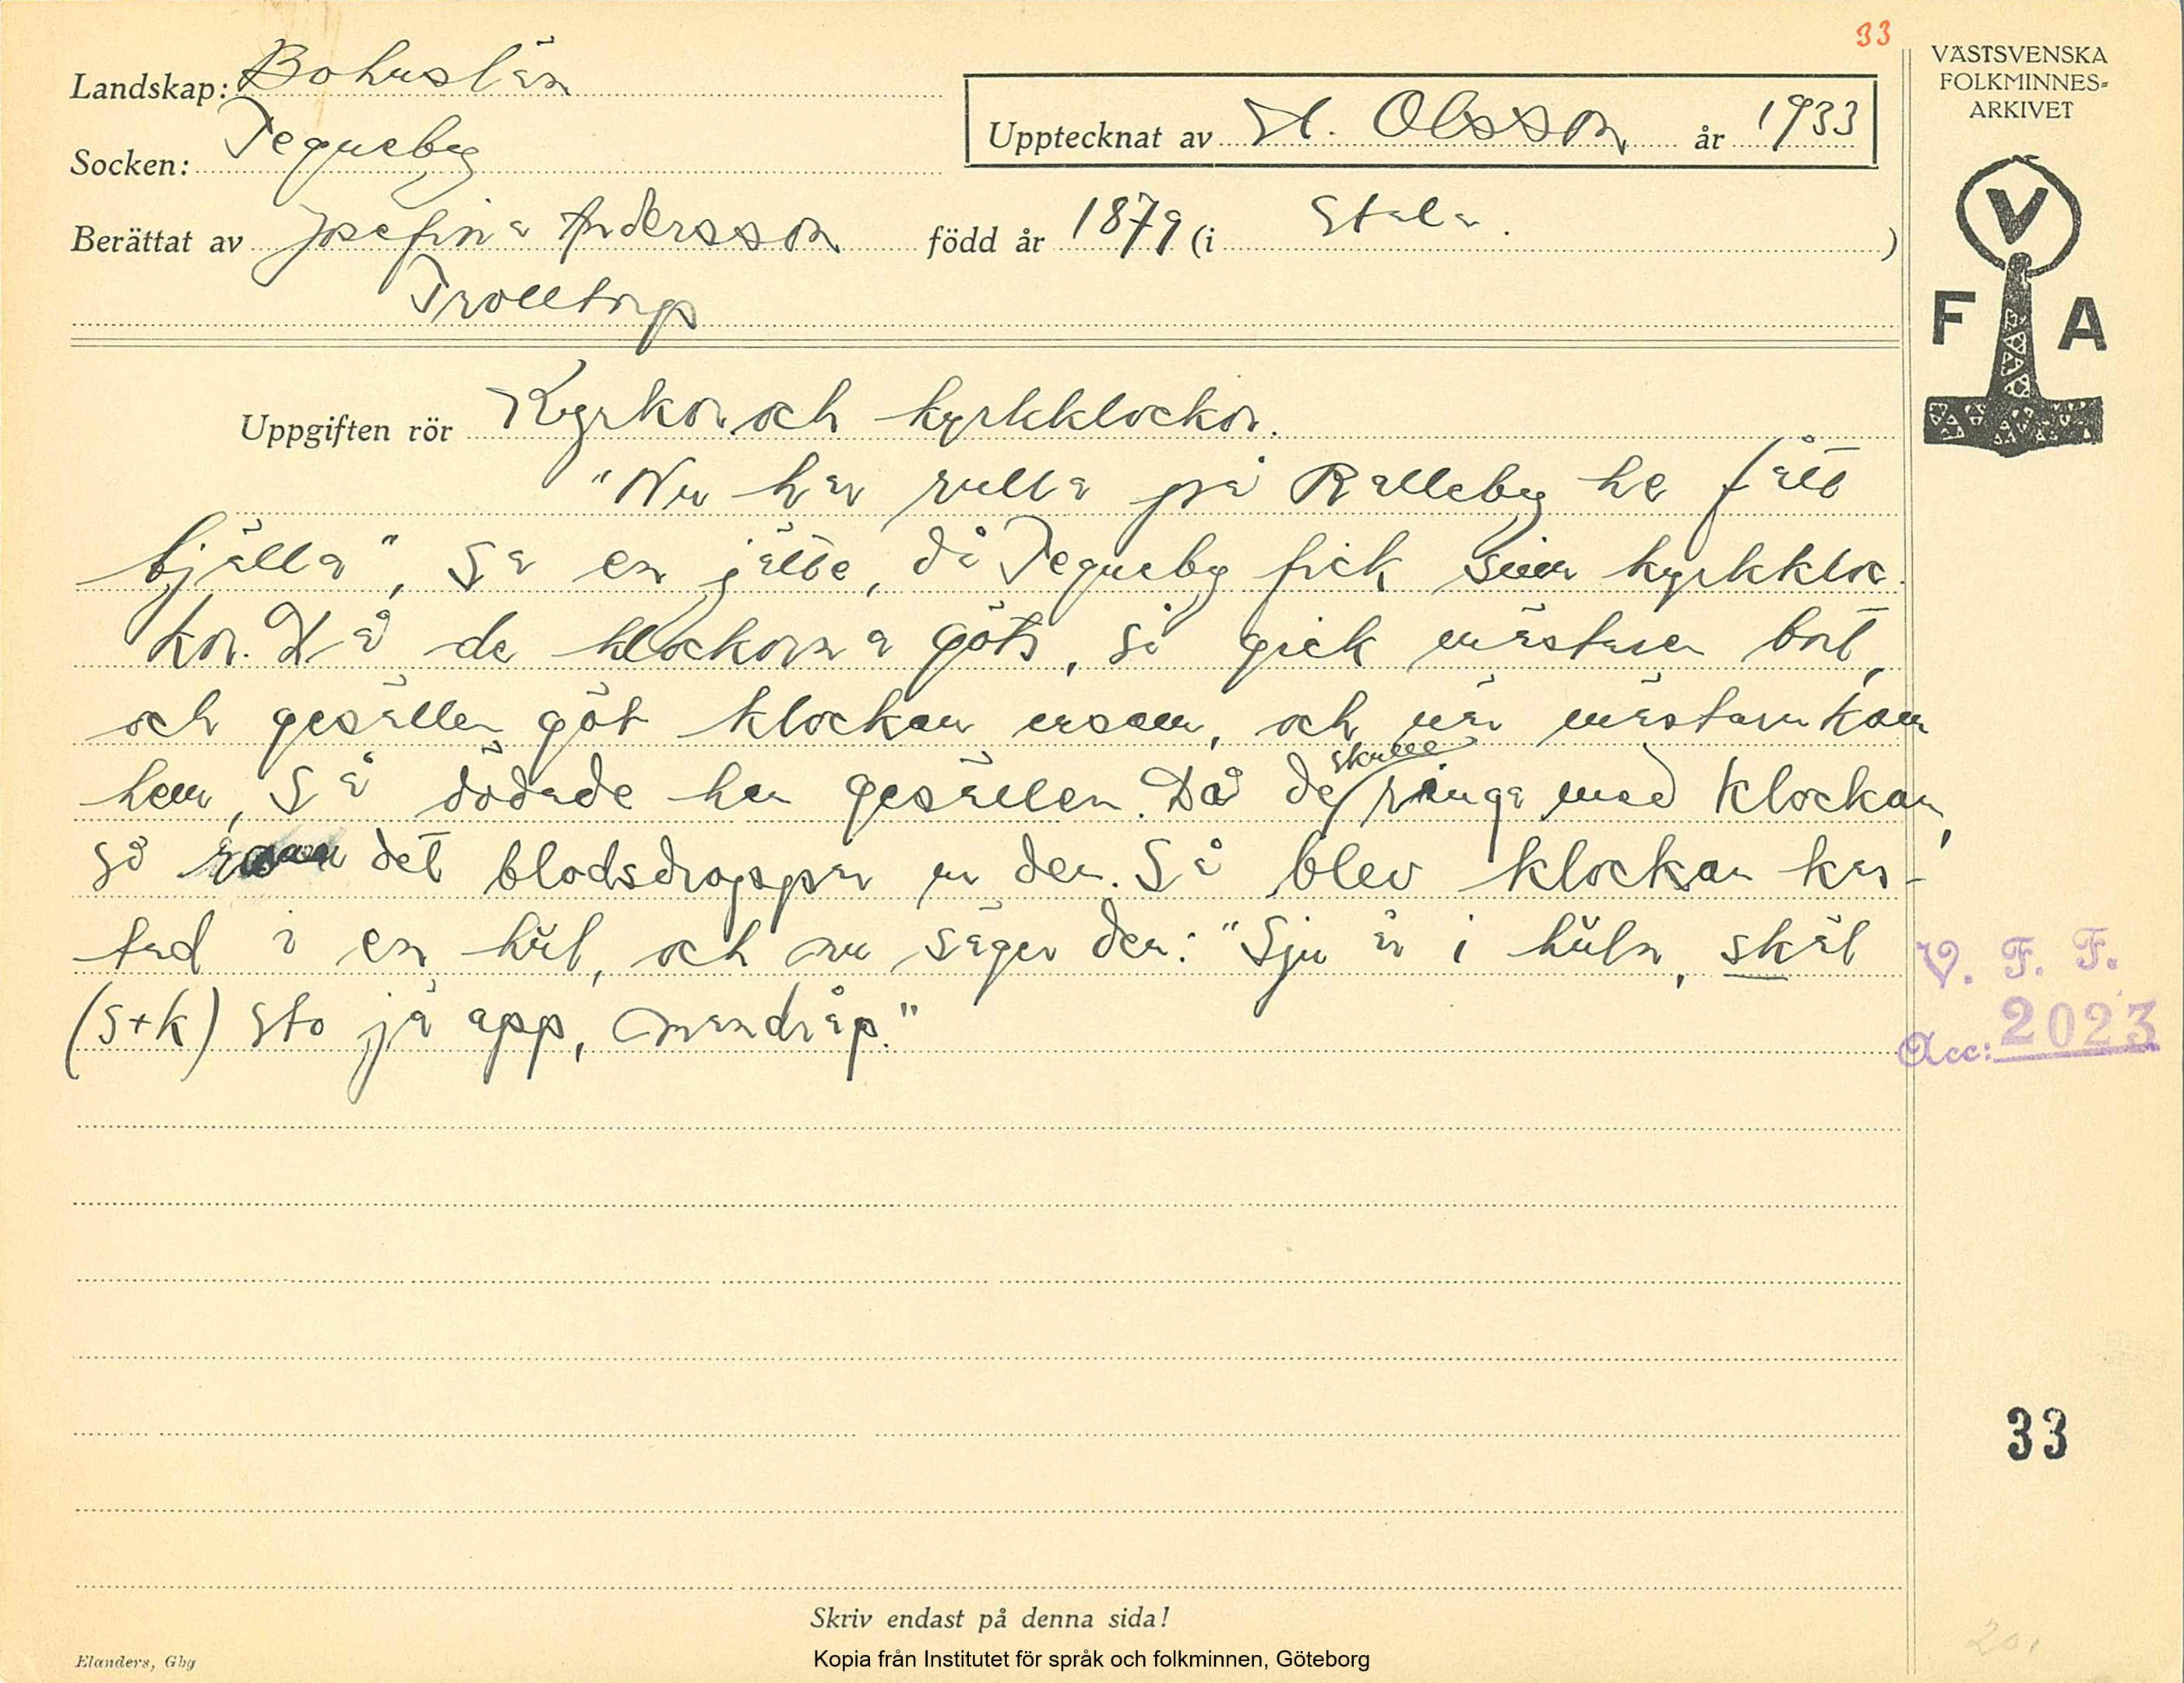 33
Landskap: Bohuslän
Socken: Tegneby
Upptecknat av H. Olsson år 1933
Berättat av Josefina Andersson född år 1879 (i Stala.)
Trolltorp
Uppgiften rör Kyrkor och kyrkklockor.
"Nu har rulla på Ralleby he fått
bjälla", sa en jätte, då Tegneby fick sina kyrkkloc-
kor. Då de klockorna göts, så gick mästaren bort,
och gesällen göt klockan ensam, och när mästarn kom
hem, så dödade han gesällen. Då de skulle ringa med klockan,
så rann det blodsdroppar ur den. Så blev klockan kas-
tad i en hül, och nu säger den: "Sju år i hüln, skäl
(s+k) sto ja app, mandråp."
VÄSTSVENSKA
FOLKMINNES-
ARKIVET
V
F A
V. F. F.
Acc: 2023
33
Skriv endast på denna sida!
Elanders, Gbg
Kopia från Institutet för språk och folkminnen, Göteborg